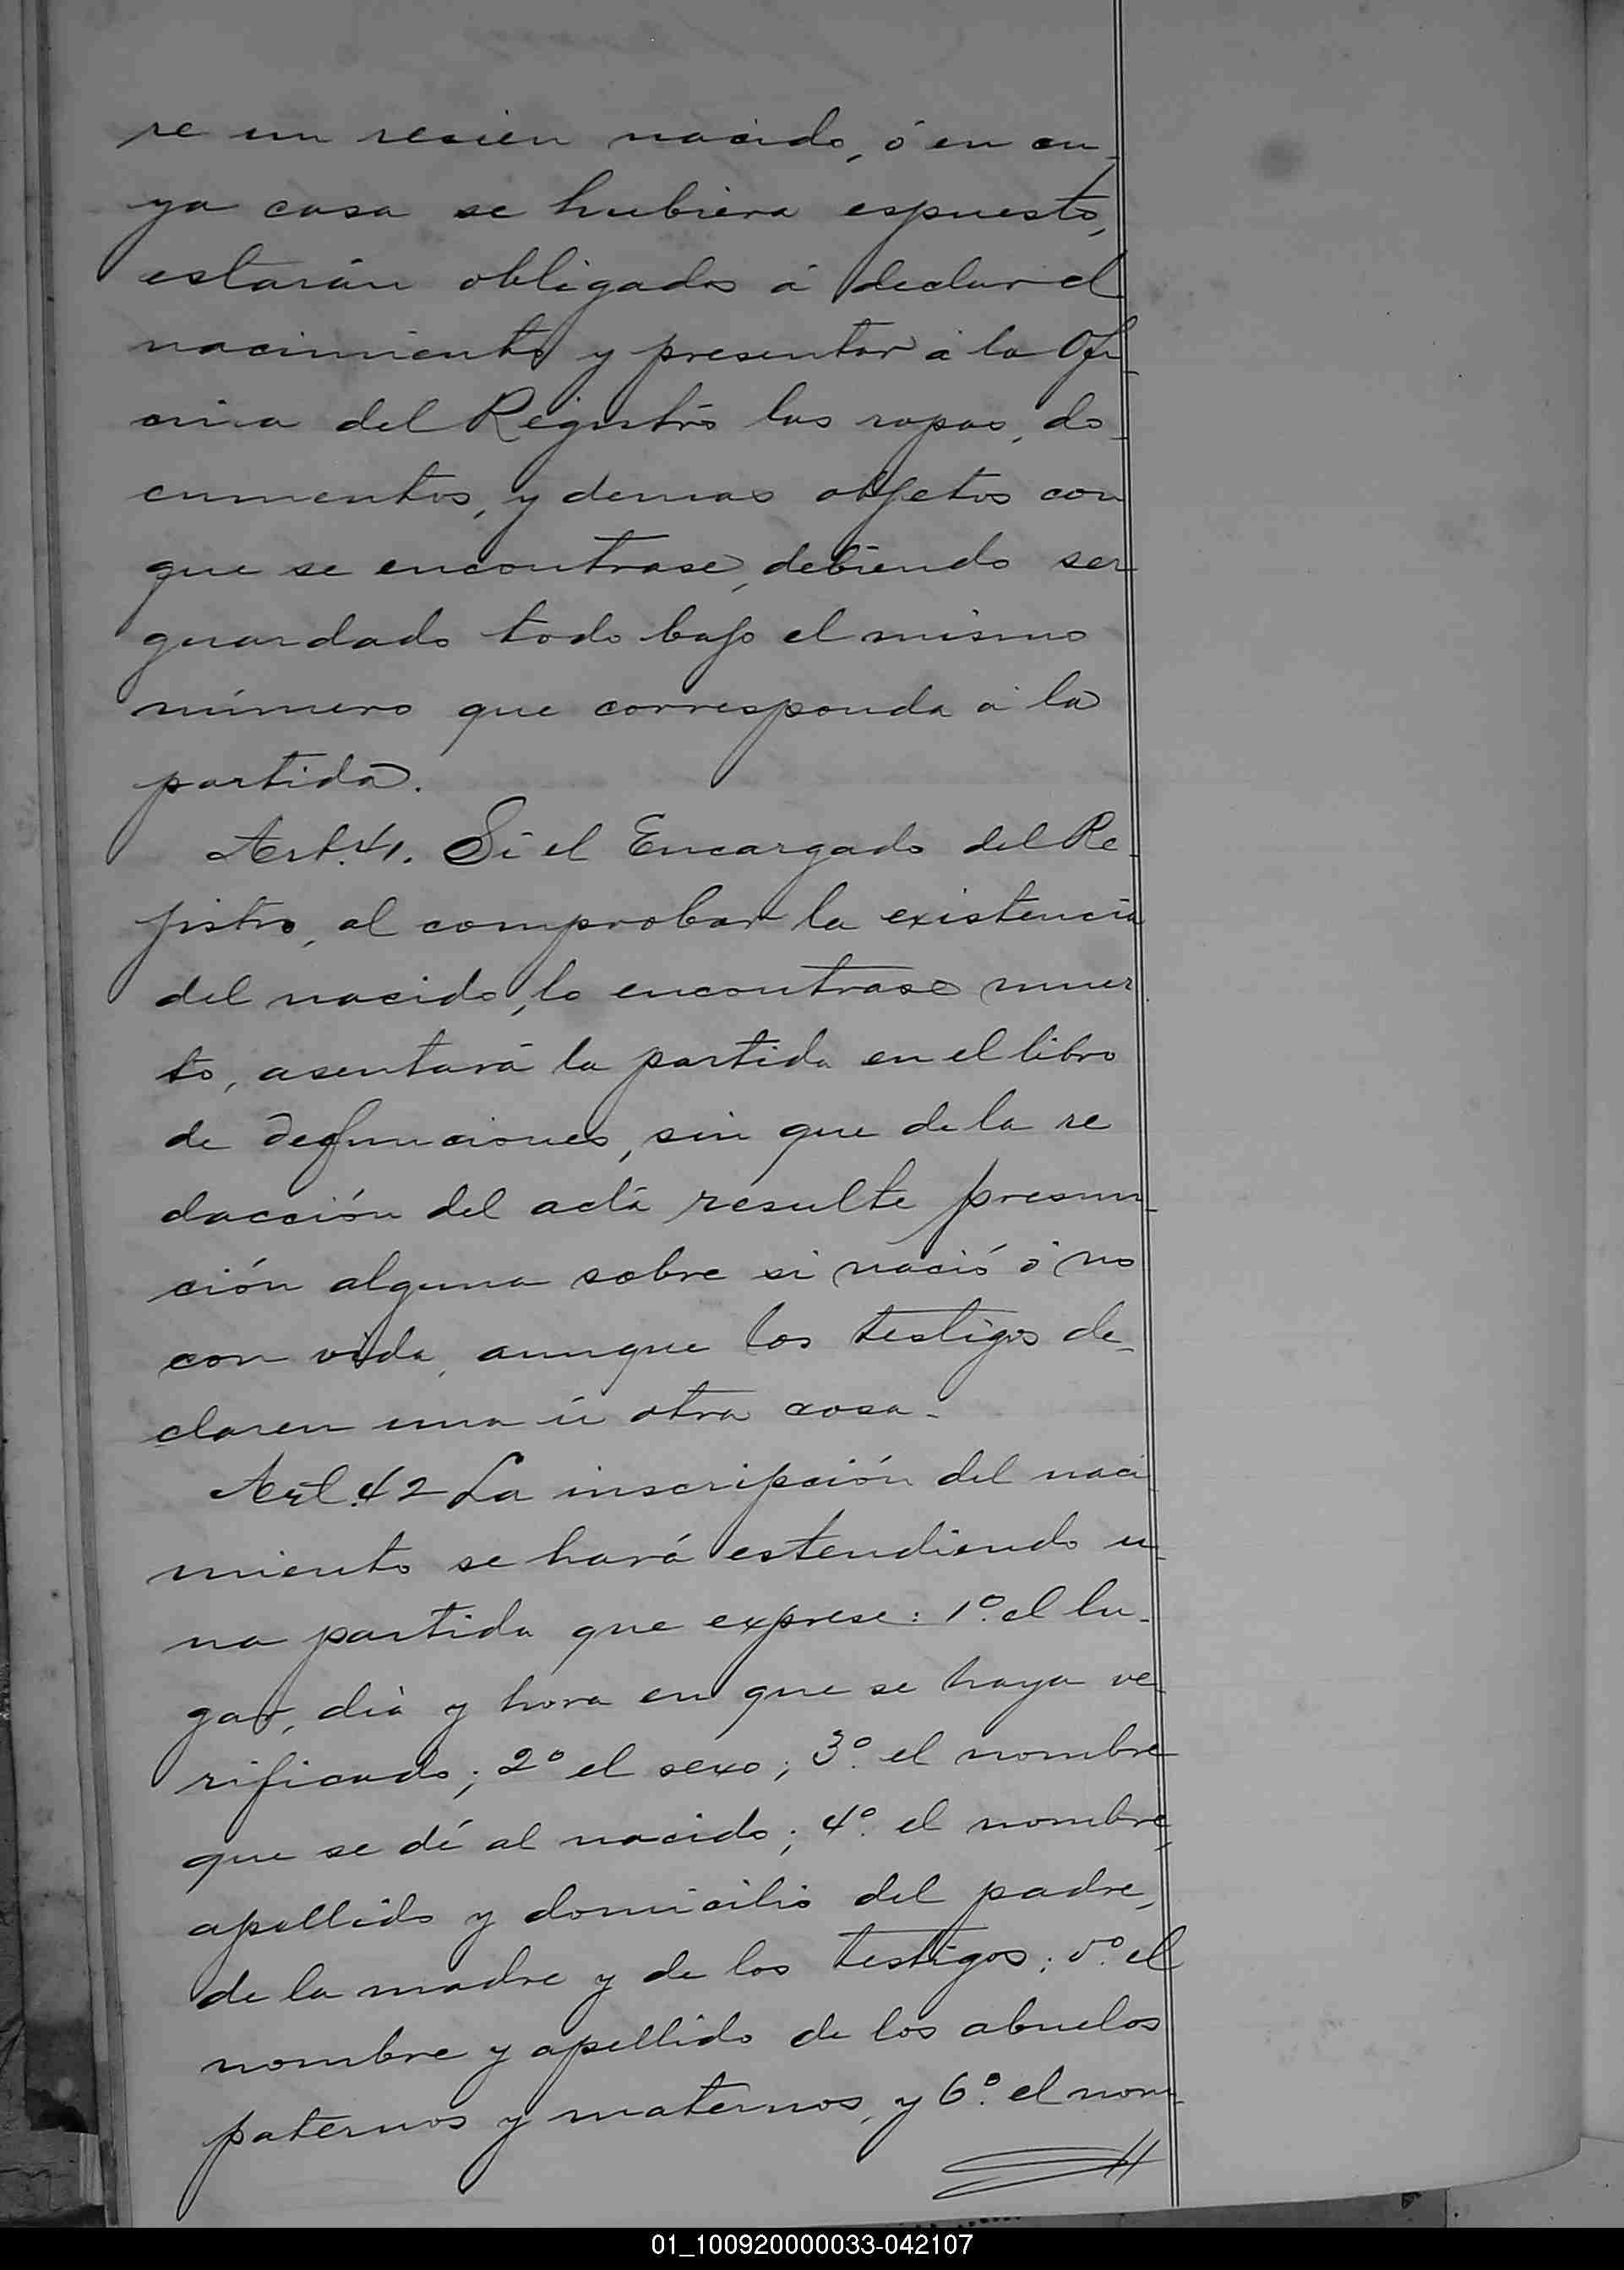 re un recien nacido, ó en cu-
ya casa se hubiera espuesto,
estarán obligados á declar el
nacimiento y presentar á la Ofi-
cina del Registro las ropas, do-
cumentos, y demas objetos con
que se encontrase, debiendo ser
guardado todo bajo el mismo
número que corresponda á la
partida.
Art. 41. Si el Encargado del Re-
jistro, al comprobar la existencia
del nacido, lo encontrase muer
to, asentará la partida en el libro
de defunciones, sin que de la re
dacción del acta resulte presun-
ción alguna sobre si nació ó no
con vida, aunque los testigos de-
claren una ú otra cosa.
Art. 42 La inscripción del naci
miento se hará estendiendo u-
na partida que exprese: 1º. el lu-
gar, dia y hora en que se haya ve
rificado; 2º el sexo; 3º. el nombre
que se dé al nacido; 4º. el nombre,
apellido y domicilio del padre,
de la madre y de los testigos; 5º. el
nombre y apellido de los abuelos
paternos y maternos, y 6º. el nom-
01_100920000033-042107